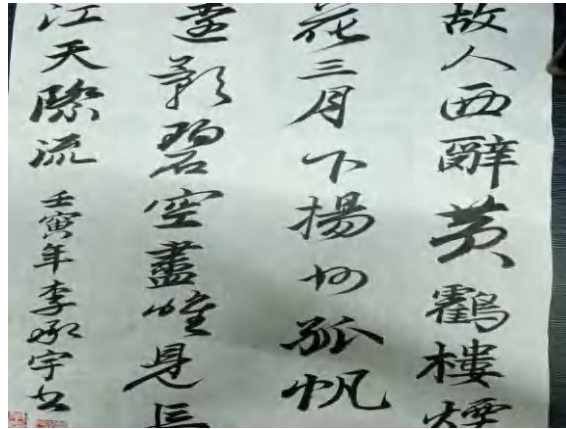 故人西辭黄鶴樓煙
花三月下揚州孤帆
遠影碧空盡唯見長
江天際流 壬寅年李承宇书